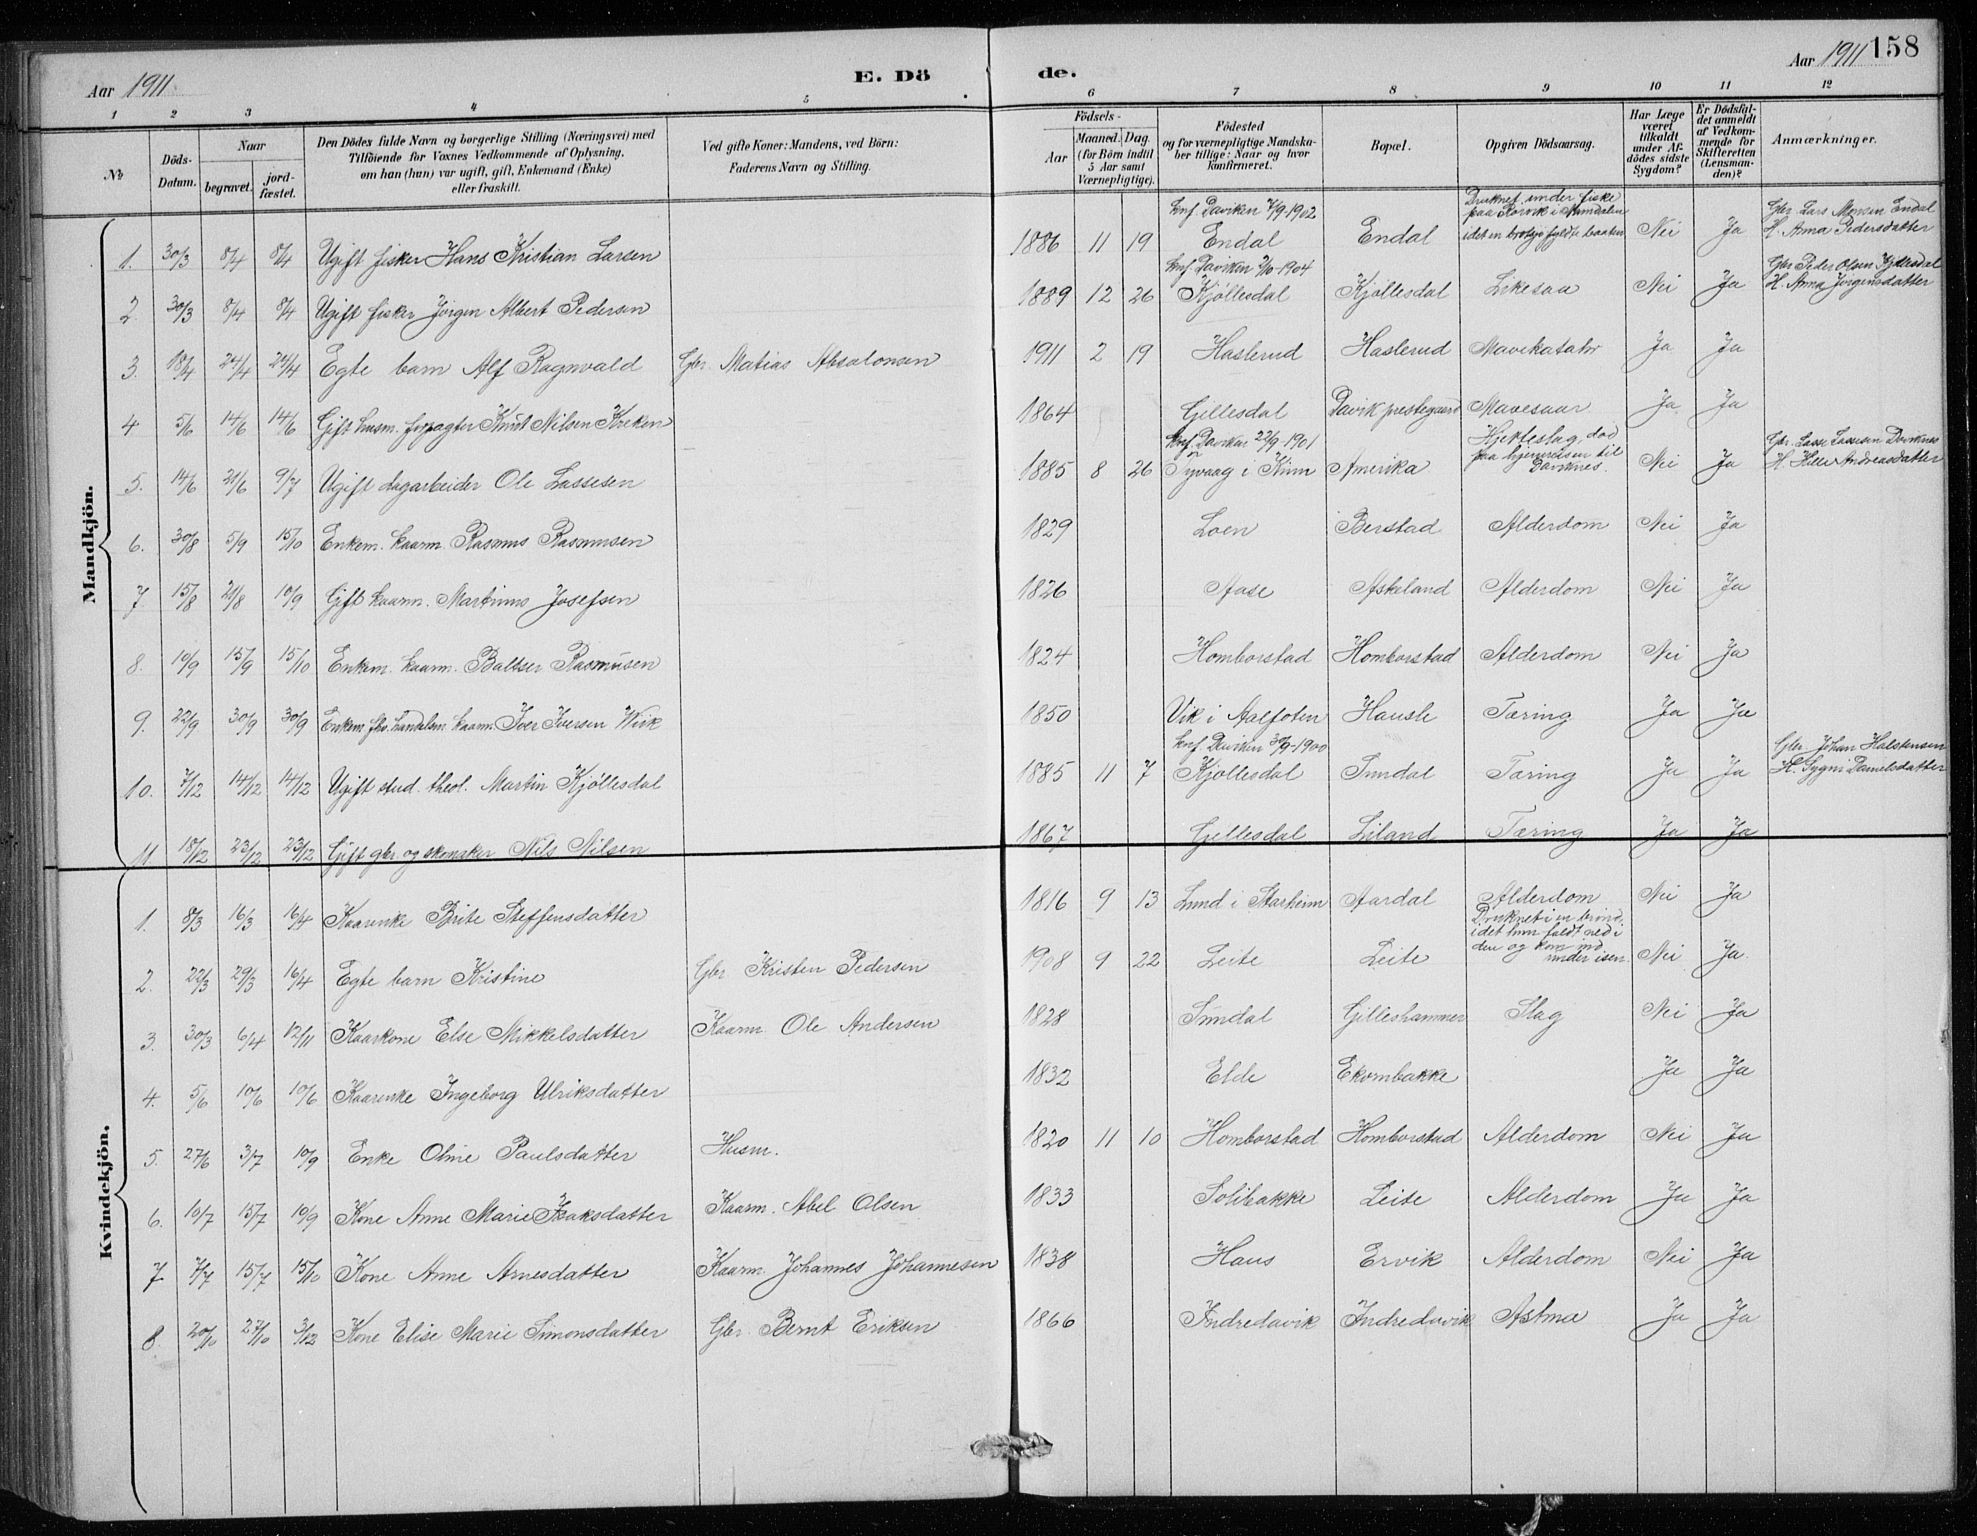 Aar 1911. E. Dö de. Aar 1911 158
1 2 3 4 5 6 7 8 9 10 11 12
№
Döds-Datum.
Naar
begravet.
jord-fæstet.
Den Dödes fulde Navn og borgerlige Stilling (Næringsvei) med
Tilföiende for Voxnes Vedkommende af Oplysning,
om han (hun) var ugift, gift, Enkemand (Enke)
eller fraskilt.
Ved gifte Koner: Mandens, ved Börn:
Faderens Navn og Stilling.
Födsels-
Aar
Maaned. Dag.
(for Börn indtil
5 Aar samt
Værnepligtige).
Födested
og for værnepligtige Mandska-
ber tillige: Naar og hvor
konfirmeret.
Bopæl.
Opgiven Dödsaarsag.
Har Læge
været
tilkaldt
under Af-
dödes sidste
Sygdom?
Er Dödsfal-
det anmeldt
af Vedkom-
mende for
Skifteretten
(Lensman-
den)?
Anmærkninger.
Mandkjön.
1. 30/3 8/4 8/4 Ugift fisker Hans Kristian Larsen 1886 11 19 konf. Daviken 7/9-1902 Endal Endal Druknet under fiske paa Rörvik i Namdalen idet en brotsjö fyldte baaten Nei Ja Gbr. Lars Monsen Endal H. Anna Pedersdatter
2. 30/3 8/4 8/4 Ugift fisker Jörgen Albert Pedersen 1889 12 26 konf. Daviken 2/10-1904 Kjöllesdal Kjöllesdal Likesaa Nei Ja Gbr. Peder Olsen Kjöllesdal H. Anna Jörgensdatter
3. 18/4 24/4 24/4 Egte barn Alf Ragnvald Gbr. Matias Absalonsen 1911 2 19 Haslerud Haslerud Mavekatahr Ja Ja
4 5/6 14/6 14/6 Gift husm. forpagter Knut Nilsen Kreken 1864 Gillesdal Davik prestegaard Mavesaar Ja Ja
5. 14/6 21/6 9/7 Ugift dagarbeider Ole Lassesen 1885 8 26 konf. Daviken 22/9-1901 Tyvaag i Kinn Amerika Hjerteslag, död paa hjemreisen til Daviknes. Nei Ja Gbr. Lasse Lassesen Daviknes H. Andreasdatter
6. 30/8 5/9 15/10 Enkem. kaarm. Rasmus Rasmusen 1829 Loen Berstad Alderdom Nei Ja
7 15/8 21/8 10/9 Gift kaarm. Martinus Josefsen 1826 Aase Askeland Alderdom Nei Ja
8. 10/9 15/9 15/10 Enkem. kaarm. Baltser Rasmusen 1824 Homborstad Homborstad Alderdom Nei Ja
9. 22/9 30/9 30/9 Enkem. fhv. handelsm. kaarm. Iver Iversen Wik 1850 Vik i Aalfoten Hausle Tæring Ja Ja
10. 7/12 14/12 14/12 Ugift stud. theol. Martin Kjöllesdal 1885 11 7 konf. Daviken 30/9-1900 Kjöllesdal Inndal Tæring Ja Ja Gbr. Johan Halstensen H. Sygni Danielsdatter
11 18/12 23/12 23/12 Gift gbr. og skomaker Nils Nilsen 1867 Gillesdal Liland Tæring Ja Ja
Kvindekjön.
1. 8/3 16/3 16/4 Kaarenke Brite Steffensdatter 1816 9 13 Lund i Starheim Aardal Alderdom Nei Ja
2. 22/3 29/3 16/4 Egte barn Kristine Gbr. Kristen Pedersen 1908 9 22 Leite Leite Druknet i en brönd, idet hun faldt ned i den og kom ind under isen. Nei Ja
3. 30/3 6/4 12/11 Kaarkone Else Mikkelsdatter Kaarm. Ole Andersen 1828 Inndal Gilleshammer Slag Nei Ja
4. 5/6 10/6 10/6 Kaarenke Ingeborg Ulriksdatter 1832 Elde Ekornbakke Ja Ja
5. 27/6 3/7 10/9 Enke Oline Paulsdatter Husm. 1820 11 10 Homborstad Homborstad Alderdom Nei Ja
6. 10/7 15/7 10/9 Kone Anne Marie Isaksdatter Kaarm. Abel Olsen 1833 Solibakke Leite Alderdom Ja Ja
7 7/7 15/7 15/10 Kone Anne Arnesdatter Kaarm. Johannes Johannesen 1838 Haus Ervik Alderdom Nei Ja
8. 20/10 27/10 3/12 Kone Elise Marie Simonsdatter Gbr. Bernt Eriksen 1866 Indredavik Indredavik Astma Ja Ja